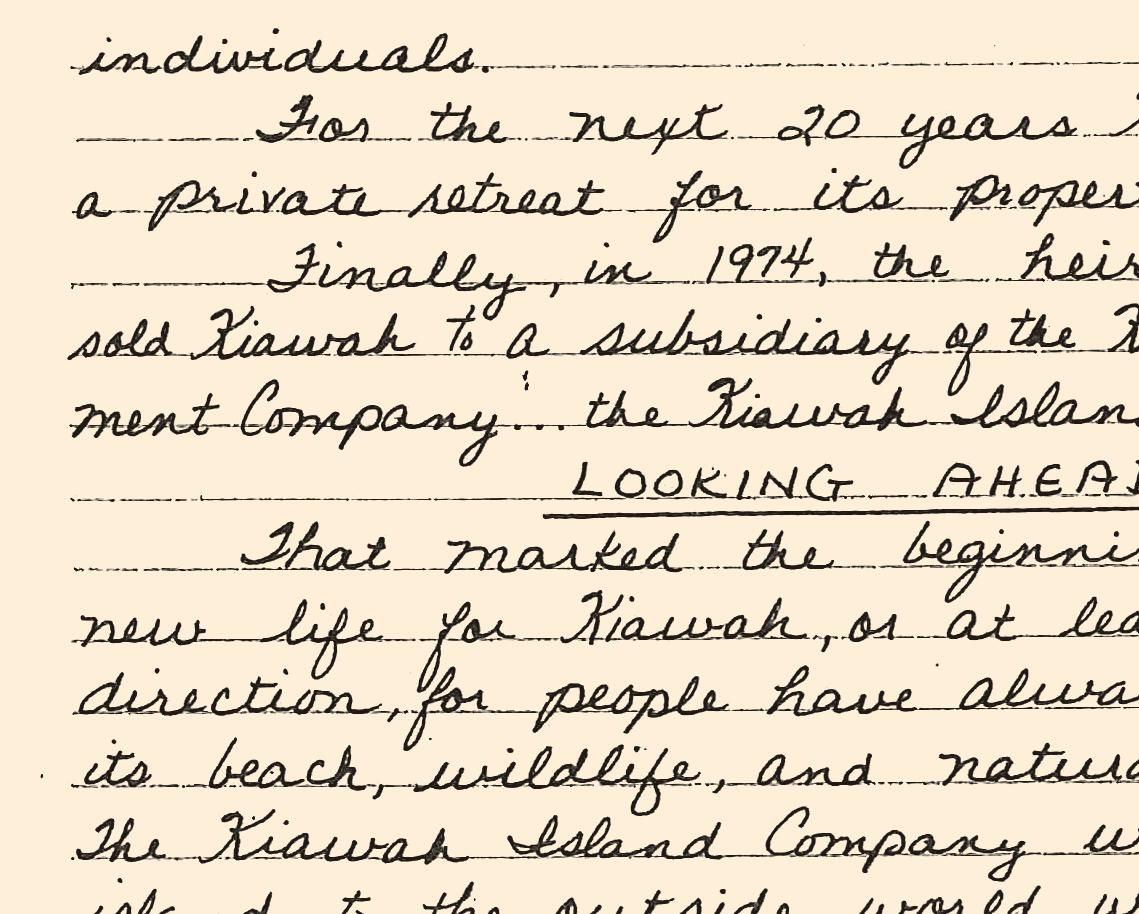 individuals.
For the next 20 years
a private retreat for its proper
Finally, in 1974, the heir
sold Kiawah to a subsidiary of the
ment Company... the Kiawah Islan
LOOKING AHEAD
That marked the beginni
new life for Kiawah, or at lea
direction, for people have alwa
its beach, wildlife, and natura
The Kiawah Island Company
island to the outside world